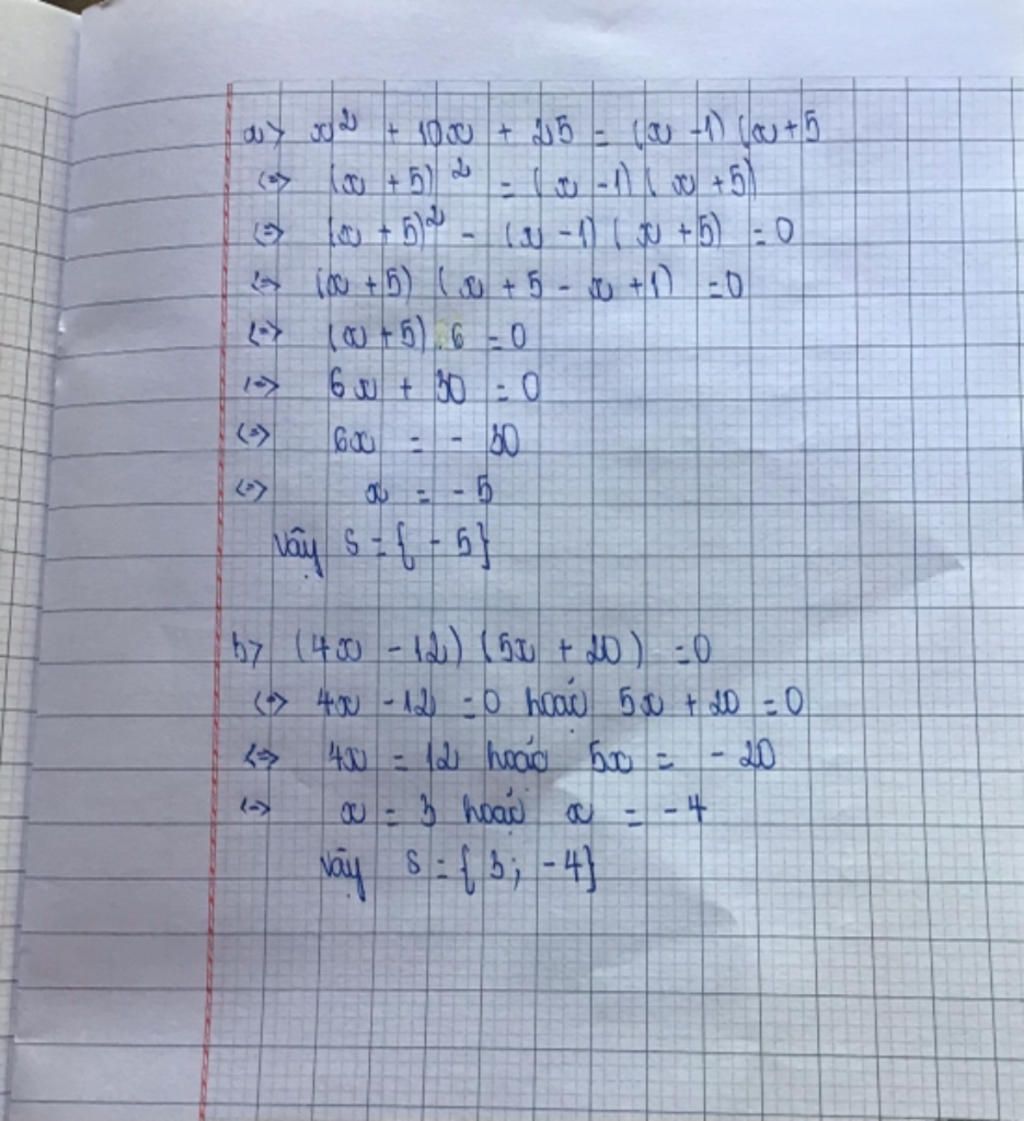 a> x² + 10x + 25 = (x -1) (x+5
<=> (x + 5)² = (x -1) (x +5)
<=> (x + 5)² - (x -1) (x +5) = 0
<=> (x +5) (x + 5 - x +1) = 0
<=> (x +5) . 6 = 0
<=> 6x + 30 = 0
<=> 6x = - 30
<=> x = - 5
Vậy S = { - 5}
b> (4x - 12) (5x + 20) = 0
<=> 4x - 12 = 0 hoặc 5x + 20 = 0
<=> 4x = 12 hoặc 5x = - 20
<=> x = 3 hoặc x = - 4
Vậy S = { 3; -4}